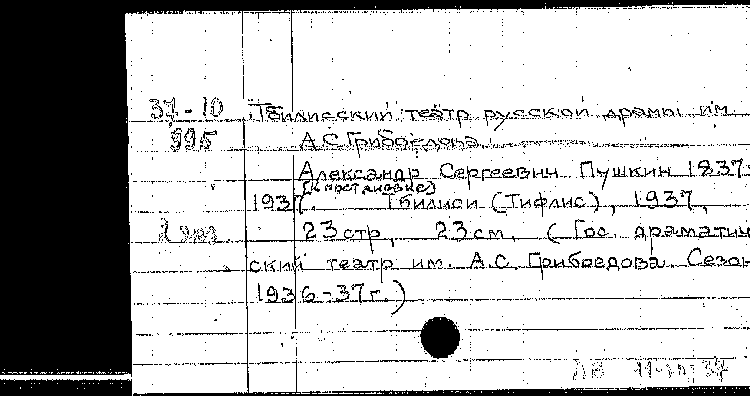 37-10 Тбилисский театр русской драмы им.
995 А.С.Грибоедова.
Александр Сергеевич Пушкин 1837-
(К постановке)
1937. Тбилиси (Тифлис), 1937,
2 экз 23 стр, 23 см, (Гос. драматич
ский театр им. А.С. Грибоедова. Сезон
1936-37г.)